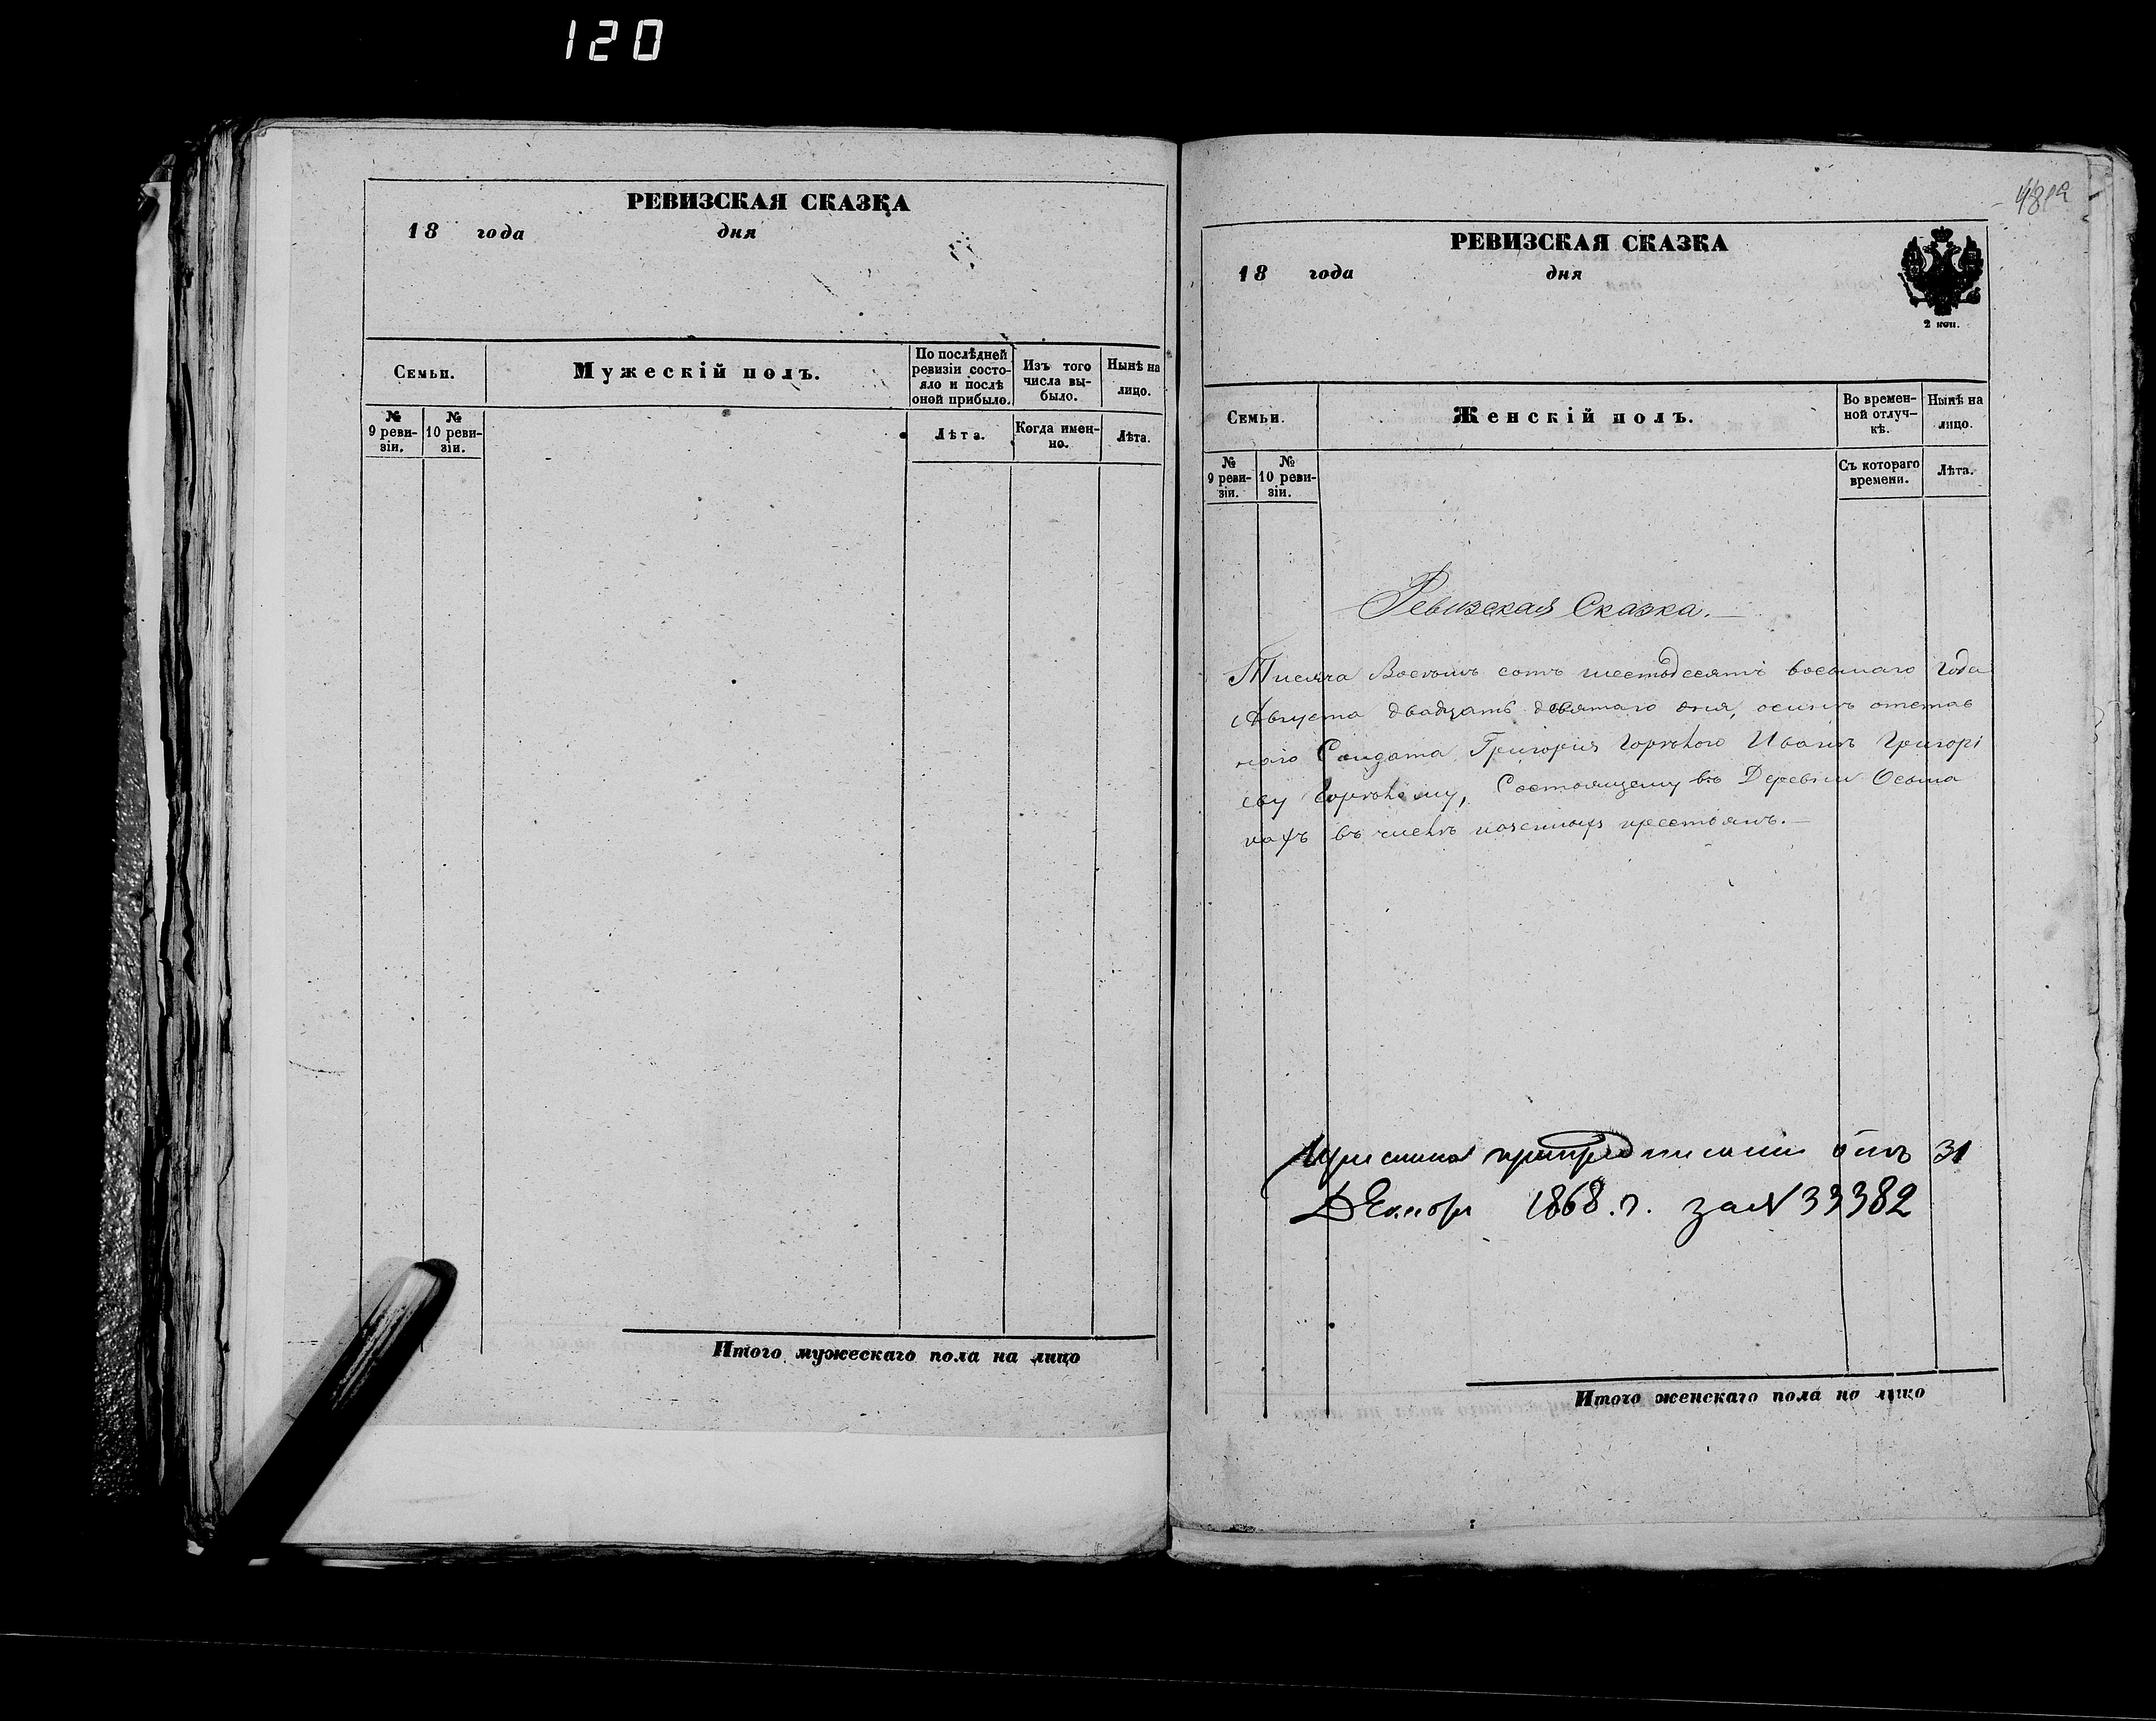 120
РЕВИЗСКАЯ СКАЗКА
18 года дня
Семьи.
Мужескій полъ.
По послѣдней ревизіи состо-
яло и послѣ оной прибыло.
Изъ того числа вы-
было.
Нынѣ на лицо.
№ 9 реви-
зіи.
№ 10 реви-
зіи.
Лѣта.
Когда имен-
но.
Лѣта.
Итого мужескаго пола на лицо
РЕВИЗСКАЯ СКАЗКА
18 года дня
2 коп.
Семьи.
Женскій полъ.
Во времен-
ной отлуч-
кѣ.
Нынѣ на лицо.
№ 9 реви-
зіи.
№ 10 реви-
зіи.
Съ котораго времени.
Лѣта.
Ревизская Сказка.
Тисяча Восемь сотъ шестьдесятъ восьмаго года
Августа двадцать девятаго дня, отстав
наго Солдата Григорія Иванъ Григорі
еву Состоящему въ Деревни Осьма
кахъ въ числѣ казенныхъ крестьянъ.
отъ 31
Декабря 1868. г. за № 33382
Итого женскаго пола на лицо